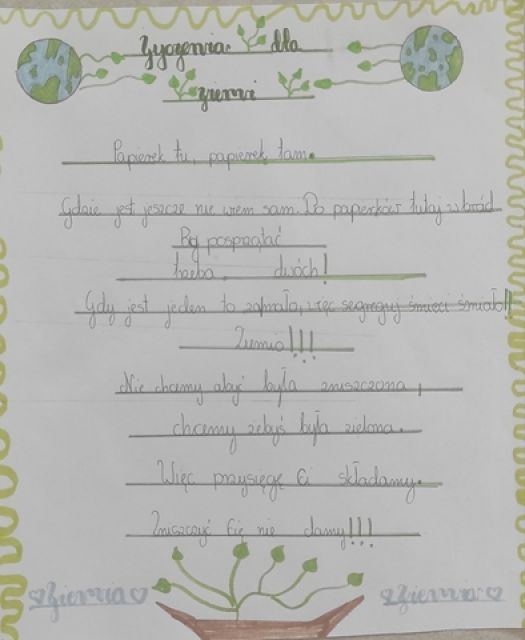 Życzenia dla
ziemi
Papierek tu, papierek tam.
Gdzie jest jeszcze nie wiem sam. Do papierków tutaj w bród
By posprzątać
trzeba dwóch!
Gdy jest jeden to zamało, więc segreguj śmieci śmiało!!
Ziemio!!!
Nie chcemy abyś była zniszczona,
chcemy żebyś była zielona.
Więc przysięgę Ci składamy.
Zniszczyć Cię nie damy!!!
Ziemia Ziemia